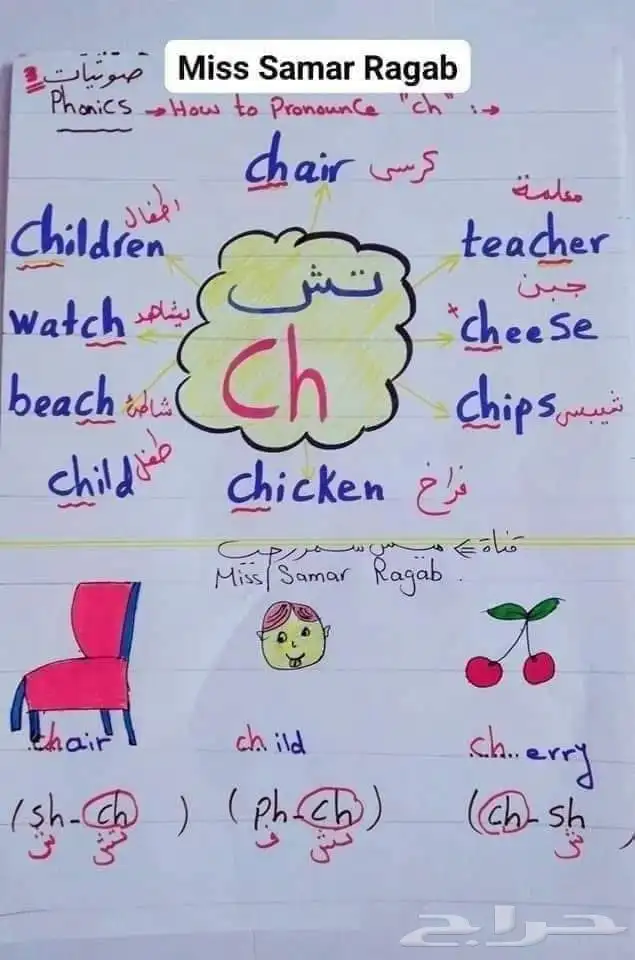 Miss Samar Ragab
صوتيات
Phonics → How to Pronounce "ch" :→
chair كرسى
children اطفال
teacher معلمة
watch يشاهد
cheese جبن
beach شاطئ
chips شيبسى
child طفل
chicken فراخ
تش
ch
قناة ⇐ ميس سمر رجب
Miss Samar Ragab.
chair
ch ild
ch.. erry
(sh-ch)
(ph-ch)
(ch-sh
ش تش
ف تش
ش
حراج